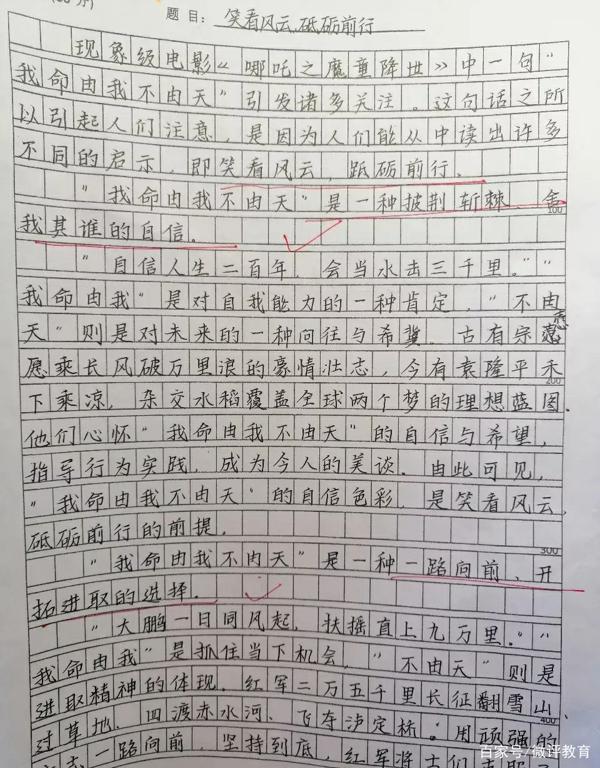 题目：笑看风云，砥砺前行
现象级电影《哪吒之魔童降世》中一句“
我命由我不由天”引发诸多关注。这句话之所
以引起人们注意，是因为人们能从中读出许多
不同的启示，即笑看风云，砥砺前行。
“我命由我不由天”是一种披荆斩棘，舍
100
我其谁的自信。
“自信人生二百年，会当水击三千里。”“
我命由我”是对自我能力的一种肯定，“不由
天”则是对未来的一种向往与希冀。古有宗悫
愿乘长风破万里浪的豪情壮志，今有袁隆平禾
200
下乘凉，杂交水稻覆盖全球两个梦的理想蓝图.
他们心怀“我命由我不由天”的自信与希望，
指导行为实践，成为今人的美谈。由此可见，
“我命由我不由天”的自信色彩，是笑看风云，
砥砺前行的前提。
300
“我命由我不由天”是一种一路向前、开
拓进取的选择。
“大鹏一日同风起，扶摇直上九万里。”“
我命由我”是抓住当下机会，“不由天”则是
进取精神的体现。红军二万五千里长征翻雪山、
400
过草地、四渡赤水河、飞夺泸定桥。用顽强的
一路向前，坚持到底，红军将士们
百家号/微评教育